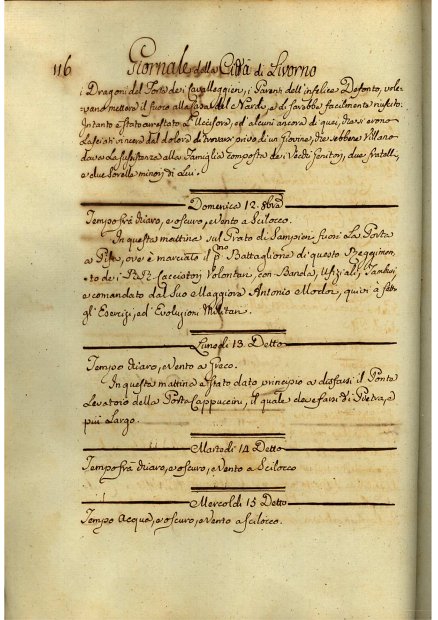 116 Giornale della Città di Livorno
i Dragoni del Forte de i Cavalleggieri, i Parenti dell'infelice Defonto, vole-
vano mettere il fuoco alla Casa del Nardi, e di farebbe facilmente riuscito:
Intanto è stato arrestato L'Uccisore, ed alcuni ancora di quei, che si erono
Lasciati vincere dal dolore di trovarsi privo di un Giovine, che sebbene Villano
dava La sussistenza alla Famiglia composta dei Vecchi Genitori, due fratelli,
e due Sorelle minori di Lui.
Domenica 12. 8bre
Tempo frà chiaro, e oscuro, e Vento a Scilocco.
In questa mattina sul Prato di Sampieri fuori La Porta
a Pisa, ove è marciato il pmo Battaglione di questo Reggimen-
to de i Rli Cacciatori Volontari, con Banda, Ufiziali, Tamburi,
e comandato dal Suo Maggiore Antonio quivi à fatto
gl'Esercizi, ed Evoluzioni Militari.
Lunedi 13. Detto
Tempo chiaro, e Vento a Greco.
In questa mattina è stato dato principio a disfarsi il Ponte
Levatorio della Porta Cappuccini, il quale deve farsi di Pietra, e
più Largo.
Martedi 14 Detto
Tempo frà chiaro, e oscuro, e Vento a Scilocco
Mercoldi 15 Detto
Tempo Acqua, e oscuro, e Vento a Scilocco.